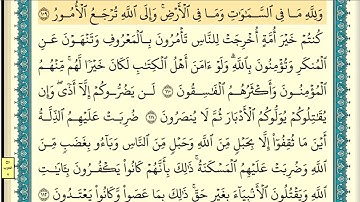 وَلِلَّهِ مَا فِي السَّمَاوَاتِ وَمَا فِي الْأَرْضِ ۚ وَإِلَى اللَّهِ تُرْجَعُ الْأُمُورُ ١٠٩
كُنتُمْ خَيْرَ أُمَّةٍ أُخْرِجَتْ لِلنَّاسِ تَأْمُرُونَ بِالْمَعْرُوفِ وَتَنْهَوْنَ عَنِ
الْمُنكَرِ وَتُؤْمِنُونَ بِاللَّهِ ۗ وَلَوْ ءَامَنَ أَهْلُ الْكِتَابِ لَكَانَ خَيْرًا لَّهُم ۚ مِّنْهُمُ
الْمُؤْمِنُونَ وَأَكْثَرُهُمُ الْفَاسِقُونَ ١١٠ لَن يَضُرُّوكُمْ إِلَّا أَذًى ۖ وَإِن
يُقَاتِلُوكُمْ يُوَلُّوكُمُ الْأَدْبَارَ ثُمَّ لَا يُنصَرُونَ ١١١ ضُرِبَتْ عَلَيْهِمُ الذِّلَّةُ
أَيْنَ مَا ثُقِفُوا إِلَّا بِحَبْلٍ مِّنَ اللَّهِ وَحَبْلٍ مِّنَ النَّاسِ وَبَاءُو بِغَضَبٍ مِّنَ
اللَّهِ وَضُرِبَتْ عَلَيْهِمُ الْمَسْكَنَةُ ۚ ذَٰلِكَ بِأَنَّهُمْ كَانُوا يَكْفُرُونَ بِـَٔايَاتِ
اللَّهِ وَيَقْتُلُونَ الْأَنبِيَاءَ بِغَيْرِ حَقٍّ ۚ ذَٰلِكَ بِمَا عَصَوا وَّكَانُوا يَعْتَدُونَ ١١٢